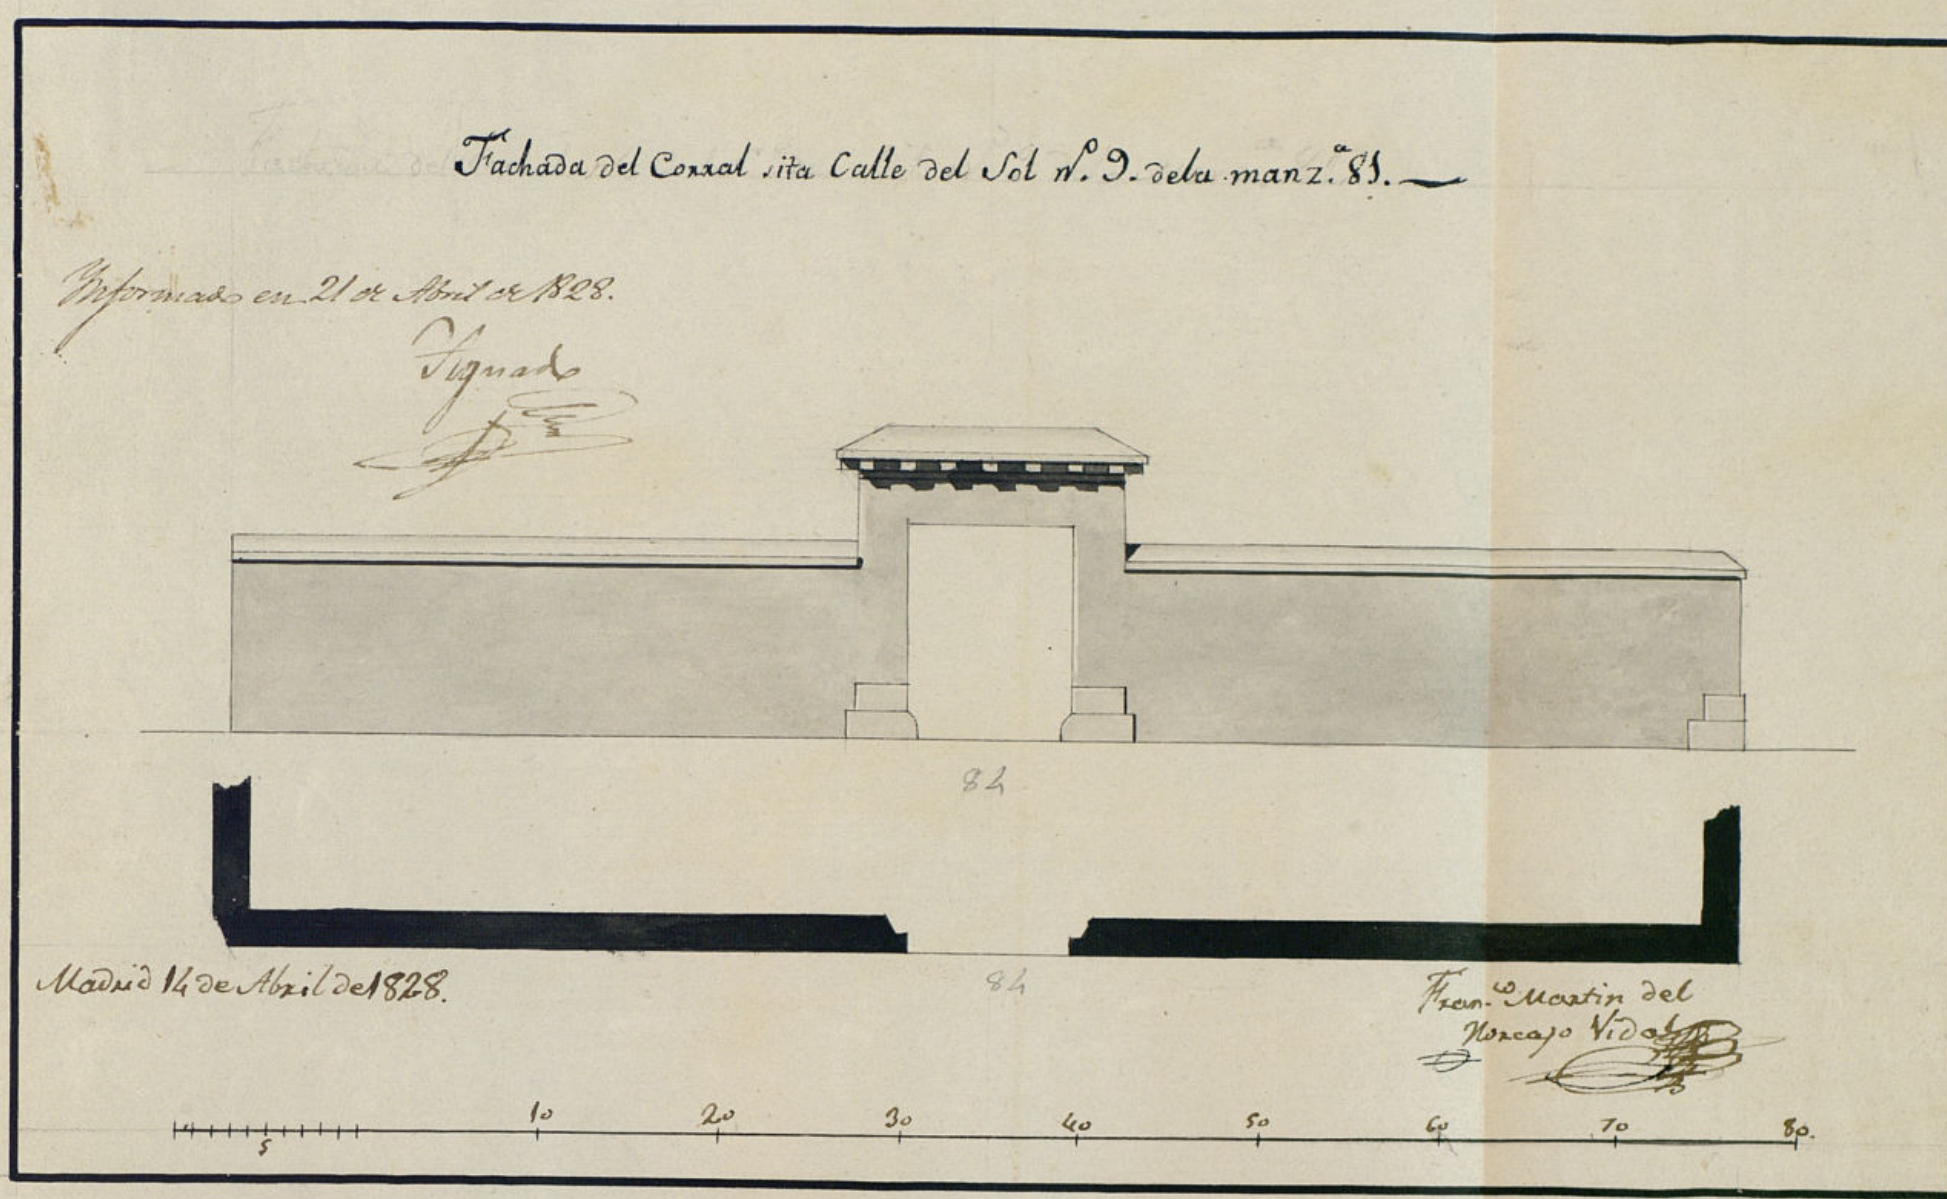 Fachada del Corral sita Calle del Sol nº. 9. dela manz.ª 81.
Informado en 21 de Abril de 1828.
84
84
Madrid 14 de Abril de 1828.
Fran.co Martin del
Horcajo Vidal
10 20 30 40 50 60 70 80.
5